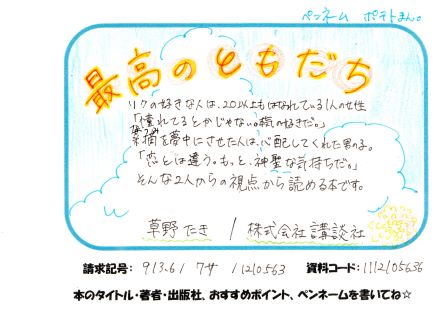 ペンネーム ポテトまん。
最高のともだち
リクの好きな人は、20以上もはなれている1人の女性
「憧れてるとかじゃない。本気の好きだ。」
菜摘を夢中にさせた人は、心配してくれた男の子。
「恋とは違う。もっと、神聖な気持ちだ。」
そんな2人からの視点から読める本です。
草野たき / 株式会社講談社
請求記号: 913.61 クサ 11210563 資料コード: 1112105636
本のタイトル・著者・出版社、おすすめポイント、ペンネームを書いてね☆